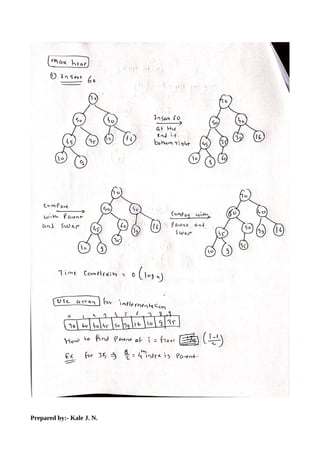 Max heap
① Insert 60
70
50 40
45 35 39 16
10 9
Insert 60
at the
end ie
bottom right
70
50 40
45 35 39 16
10 9 60
Compare
with Parent
and Swap
70
50 40
45 60 39 16
10 9 35
Compare with
Parent and
Swap
70
60 40
45 50 39 16
10 9 35
Time Complexity = O (log n)
Use array for implementation
0 1 2 3 4 5 6 7 8 9
70 60 40 45 50 39 16 10 9 35
How to find Parent of i = floor (i-1/2)
Ex for 35 ⇒ 8/2 = 4th index is Parent.
Prepared by:- Kale J. N.